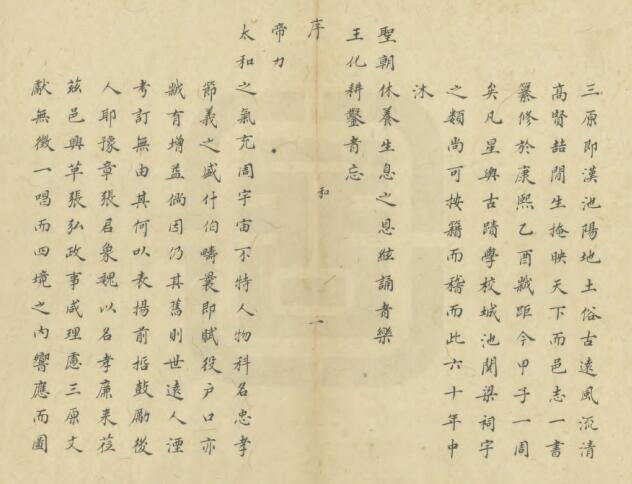 三原即漢池陽地土俗古遠風流清
高賢喆間生掩映天下而邑志一書
纂修於康熙乙酉歲距今甲子一周
矣凡星輿古蹟學校城池關梁祠宇
之類尚可按籍而稽而此六十年中
沐
聖朝休養生息之恩絃誦者樂
王化耕鑿者忘
序
和
一
帝力
太和之氣充周宇宙不特人物科名忠孝
節義之盛什伯疇曩即賦役户口亦
歲有增益倘因仍其舊則世遠人湮
考訂無由其何以表揚前哲鼓勵後
人耶豫章張君象魏以名孝廉来蒞
茲邑興革張弘政事咸理慮三原文
獻無徵一唱而四境之内響應而圖